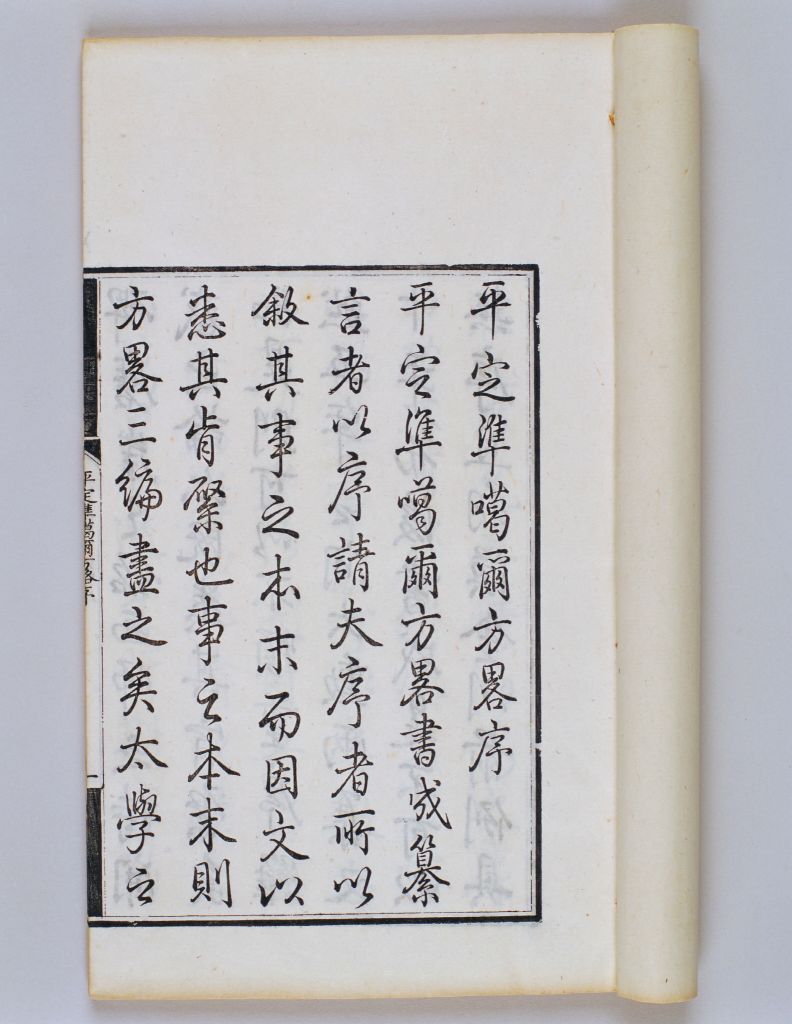 平定準噶爾方畧序
平定準噶爾方畧書成纂
言者以序請夫序者所以
敘其事之本末而因文以
悉其肯綮也事之本末則
方畧三編盡之矣太學之
平定準噶爾方畧序
一